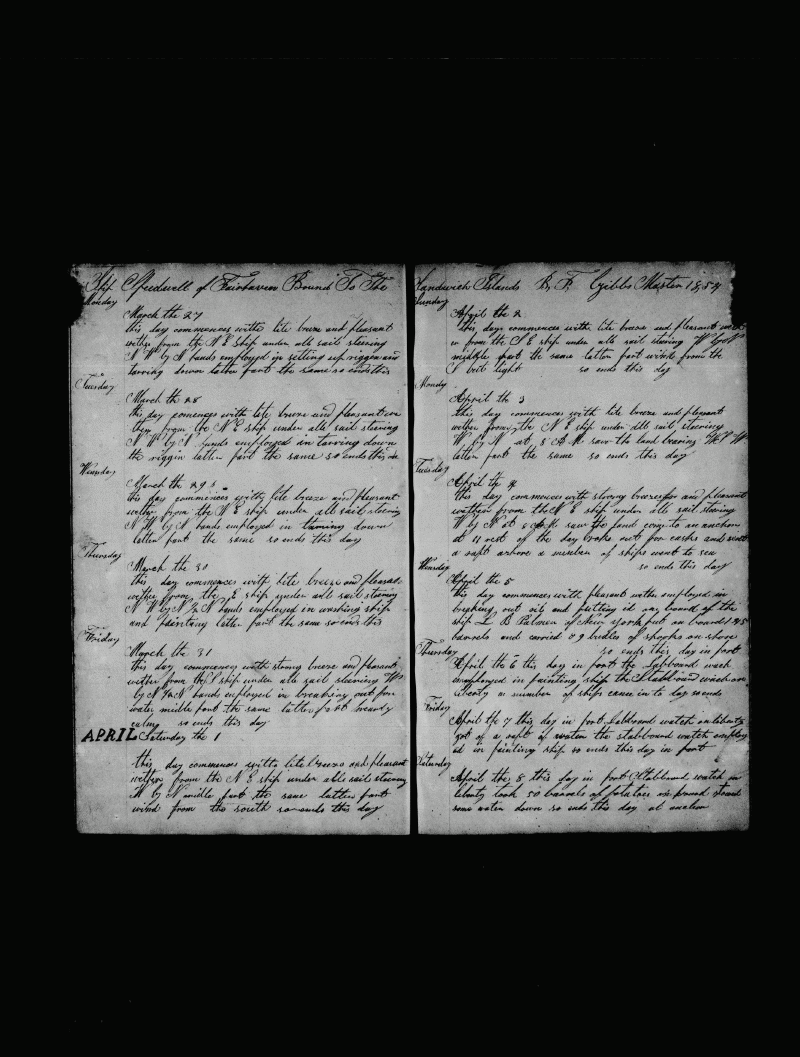 Ship Speedwell of Fairhaven Bound To The
Monday
March the 27
this day commences withe lite breze and pleasant
wether from the N E ship under alls sail steering
N W by N hands employed in setting up riggen and
tarring down latter part the same so ends this
Tuesday
March the 28
this day comences with lite breeze and pleasant
from the N E ship under alls sail steering
N W by N hands employed in tarring down
the riggin latter part the same so ends this
Wensday
March the 29
this day commences withe lite breeze and pleasant
wether from the N E ship under alls sail steering
N W by N hands employed in tarring down
latter part the same so ends this day
Thursday
March the 30
this day commences with lite breeze and pleasant
wether from the E ship under alls sail steering
N W by N hands employed in washing ship
and painting latter part the same so ends this
Friday
March the 31
this day commences withe strong breeze and pleasant
wether from the ship under alls sail steering W
by N hands employed in breaking out for
water middle part the same latter part nearly
calm so ends this day
APRIL Saturday the 1
this day commences withe lite breeze and pleasant
wether from the N E ship under alls sail steering
W by N middle part the same latter part
wind from the south so ends this day
Sandwich Islands B. F. Gibbs Master 1854
Sunday
April the 2
this day commences withe lite breeze and pleasant
from the S E ship under alls sail steering W by N
middle part the same latter part wind from the
S but light so ends this day
Monday
April the 3
this day commences withe lite breeze and pleasant
wether from the N E ship under alls sail steering
W by N at 5 A M saw the land bearing
latter part the same so ends this day
Tuesday
April the 4
this day commences with strong breezes and pleasant
wether from the N E ship under alls sail steering
W by N at saw the land come to an anchor
at 11 rest of the day broke out for casks and sent
a raft ashore a number of ships went to sea
so ends this day
Wensday
April the 5
this day commences with pleasant wether employed in
breaking out oil and putting it on board of the
ship L B Palmer of New York put on board 145
barrels and carried 09 bundles of shooks on shore
so ends this day in port
Thursday
April the 6 this day in port the Labbourd wach
employed in painting ship the Stabbourd wach on
liberty a number of ships came in to day so ends
Friday
April the 7 this day in port Labbourd watch on liberty
got of a raft of water the stabbourd watch employ
ed in painting ship so ends this day in port
Saturday
April the 8 this day in port Stabbourd watch on
liberty took 50 barrels of potatoes on board stowed
some water down so ends this day at anchor